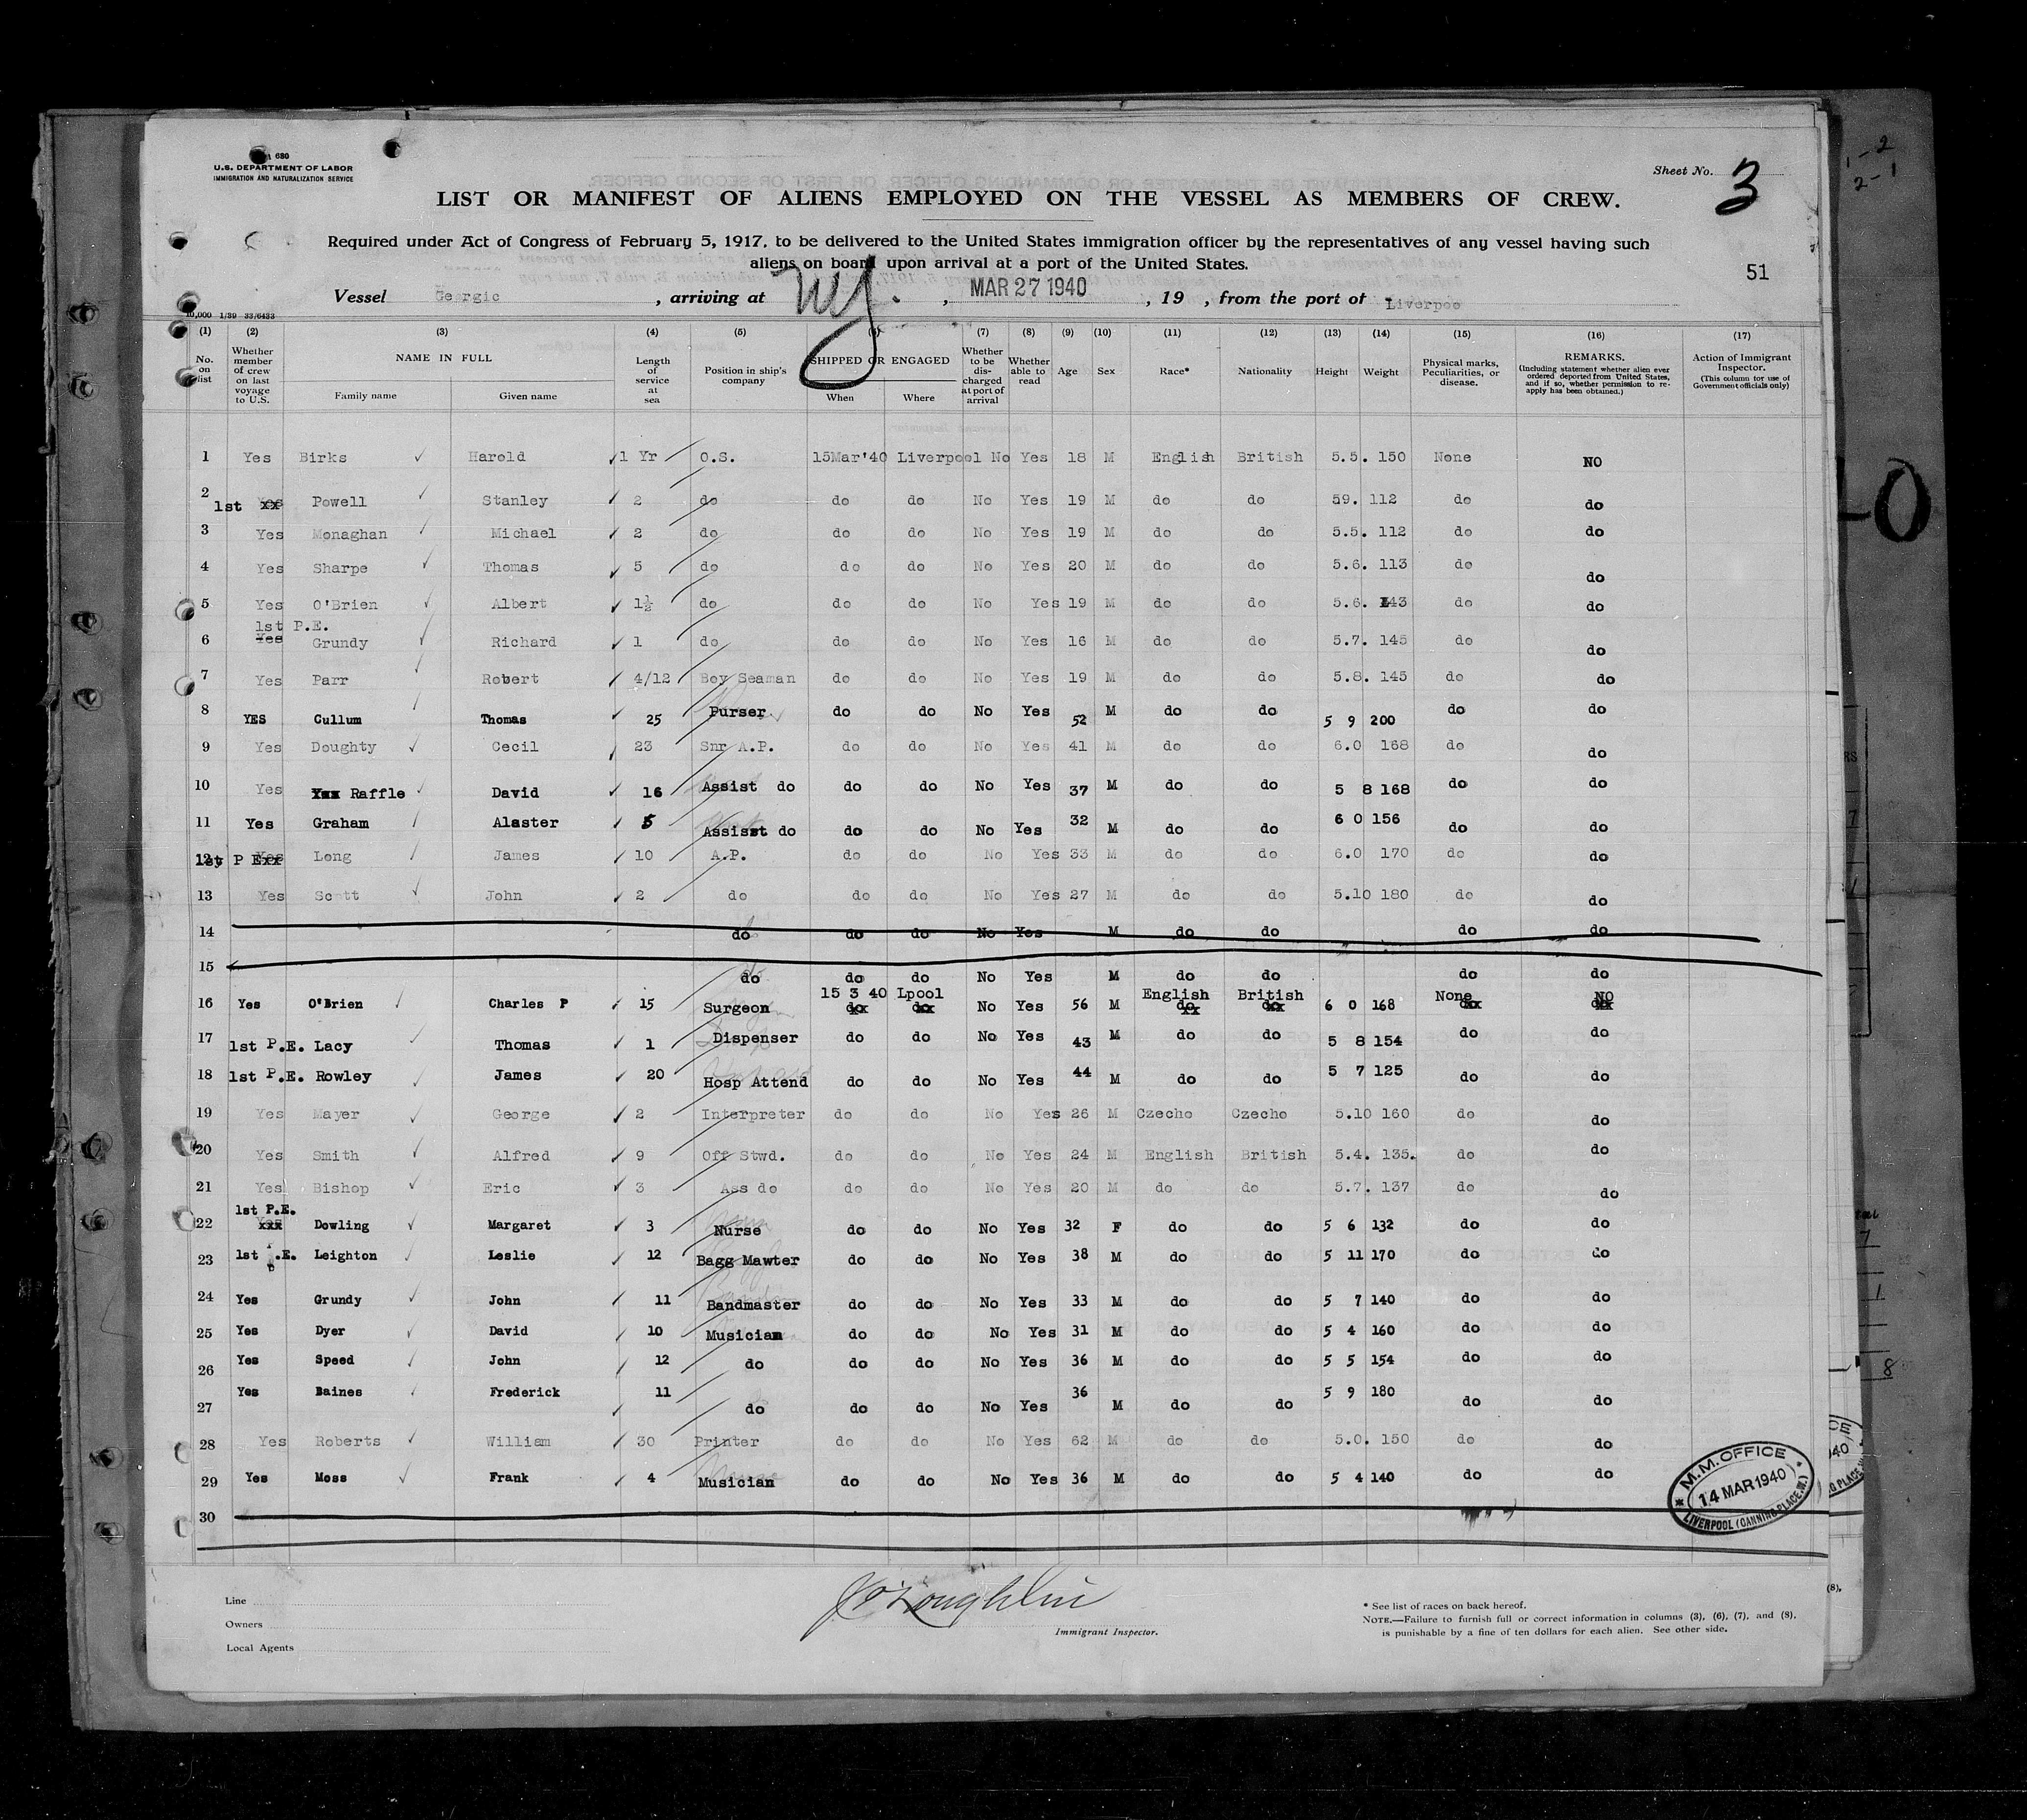 680
U.S. DEPARTMENT OF LABOR
IMMIGRATION AND NATURALIZATION SERVICE
Sheet No. 3
LIST OR MANIFEST OF ALIENS EMPLOYED ON THE VESSEL AS MEMBERS OF CREW.
Required under Act of Congress of February 5, 1917, to be delivered to the United States immigration officer by the representatives of any vessel having such
aliens on board upon arrival at a port of the United States.
51
Vessel Georgic , arriving at NY. , MAR 27 1940 , 19 , from the port of Liverpoo
10,000 1/39 33/6433
(1) (2) (3) (4) (5) (6) (7) (8) (9) (10) (11) (12) (13) (14) (15) (16) (17)
No. on list Whether member of crew on last voyage to U.S. NAME IN FULL Family name Given name Length of service at sea Position in ship's company SHIPPED OR ENGAGED When Where Whether to be discharged at port of arrival Whether able to read Age Sex Race* Nationality Height Weight Physical marks, Peculiarities, or disease. REMARKS. (Including statement whether alien ever ordered deported from United States, and if so, whether permission to re-apply has been obtained.) Action of Immigrant Inspector. (This column for use of Government officials only)
1 Yes Birks Harold 1 Yr O.S. 15Mar'40 Liverpool No Yes 18 M English British 5.5. 150 None NO
2 1st xx Powell Stanley 2 do do do No Yes 19 M do do 59. 112 do do
3 Yes Monaghan Michael 2 do do do No Yes 19 M do do 5.5. 112 do do
4 Yes Sharpe Thomas 5 do do do No Yes 20 M do do 5.6. 113 do do
5 Yes O'Brien Albert 1½ do do do No Yes 19 M do do 5.6. 143 do do
1st P.E.
6 Yes Grundy Richard 1 do do do No Yes 16 M do do 5.7. 145 do do
7 Yes Parr Robert 4/12 Boy Seaman do do No Yes 19 M do do 5.8. 145 do do
8 YES Cullum Thomas 25 Purser do do No Yes 52 M do do 5 9 200 do do
9 Yes Doughty Cecil 23 Snr A.P. do do No Yes 41 M do do 6.0 168 do do
10 Yes Raffle David 16 Assist do do do No Yes 37 M do do 5 8 168 do do
11 Yes Graham Alaster 5 Assisst do do do No Yes 32 M do do 6 0 156 do do
12 1st P Exx Long James 10 A.P. do do No Yes 33 M do do 6.0 170 do do
13 Yes Scott John 2 do do do No Yes 27 M do do 5.10 180 do do
14 do do do No Yes M do do do do
15 do do do No Yes M do do do do
15 3 40 Lpool English British None NO
16 Yes O'Brien Charles P 15 Surgeon do do No Yes 56 M do do 6 0 168 do do
17 1st P.E. Lacy Thomas 1 Dispenser do do No Yes 43 M do do 5 8 154 do do
18 1st P.E. Rowley James 20 Hosp Attend do do No Yes 44 M do do 5 7 125 do do
19 Yes Mayer George 2 Interpreter do do No Yes 26 M Czecho Czecho 5.10 160 do do
20 Yes Smith Alfred 9 Off Stwd. do do No Yes 24 M English British 5.4. 135. do do
21 Yes Bishop Eric 3 Ass do do do No Yes 20 M do do 5.7. 137 do do
1st P.E.
22 xxx Dowling Margaret 3 Nurse do do No Yes 32 F do do 5 6 132 do do
23 1st P.E. Leighton Leslie 12 Bagg Mawter do do No Yes 38 M do do 5 11 170 do do
24 Yes Grundy John 11 Bandmaster do do No Yes 33 M do do 5 7 140 do do
25 Yes Dyer David 10 Musician do do No Yes 31 M do do 5 4 160 do do
26 Yes Speed John 12 do do do No Yes 36 M do do 5 5 154 do do
27 Yes Baines Frederick 11 do do do No Yes 36 M do do 5 9 180 do do
28 Yes Roberts William 30 Printer do do No Yes 62 M do do 5.0. 150 do do
29 Yes Moss Frank 4 Musician do do No Yes 36 M do do 5 4 140 do do
30
M.M. OFFICE
14 MAR 1940
LIVERPOOL (CANNING PLACE.W.)
J O'Loughlin
Immigrant Inspector.
Line
Owners
Local Agents
* See list of races on back hereof.
NOTE.—Failure to furnish full or correct information in columns (3), (6), (7), and (8),
is punishable by a fine of ten dollars for each alien. See other side.